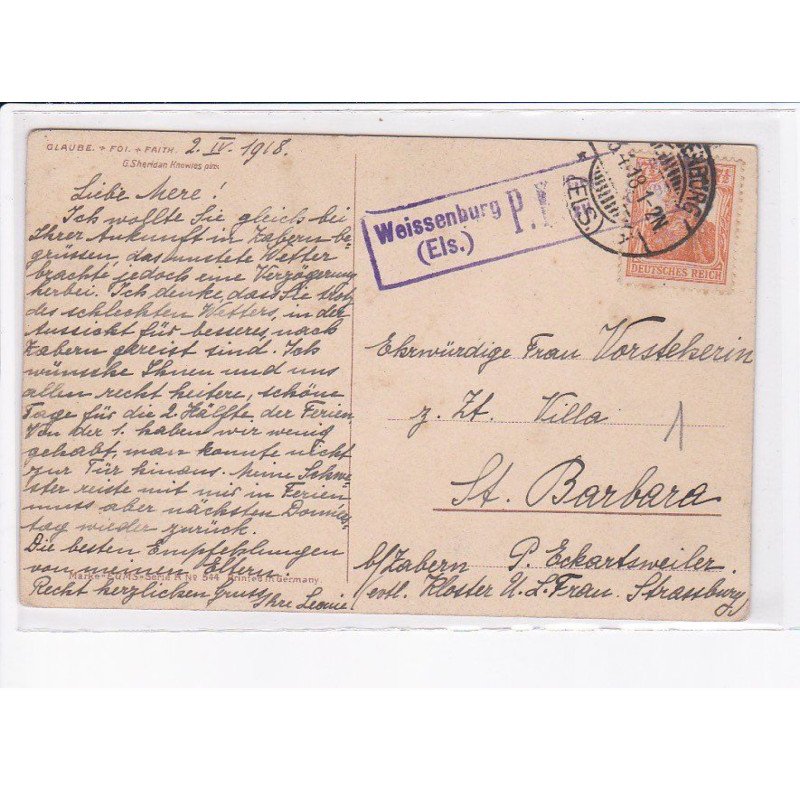 GLAUBE. + FOI. + FAITH.
2. IV. 1918.
G. Sheridan Knowles pinx.
Liebe Mere!
Ich wollte Sie gleich bei
Ihrer Ankunft in Zabern be-
grüssen, das
Wetter
brachte jedoch eine Verzögerung
herbei. Ich denke, dass Sie trotz
des schlechten Wetters, in der
Aussicht für besseres, nach
Zabern gereist sind. Ich
wünsche Ihnen und uns
allen recht heitere, schöne
Tage für die 2. Hälfte der Ferien
Von der 1. haben wir wenig
gehabt, man konnte nicht
zur Tür hinaus. Meine Schwe-
ster reiste mit mir in Ferien
muss aber nächsten Donners-
tag wieder zurück.
Die besten Empfehlungen
von meinen Eltern.
Marke "EUMS" Serie A No 544 Printed in Germany.
Recht herzlichen Gruss
Ihre Leonie
Weissenburg
(Els.)
P.
(ELS.)
DEUTSCHES REICH
Ehrwürdige Frau Vorsteherin
z. Zt. Villa
1
St. Barbara
b/Zabern P. Eckartsweiler.
evtl. Kloster U. L. Frau. Strassburg